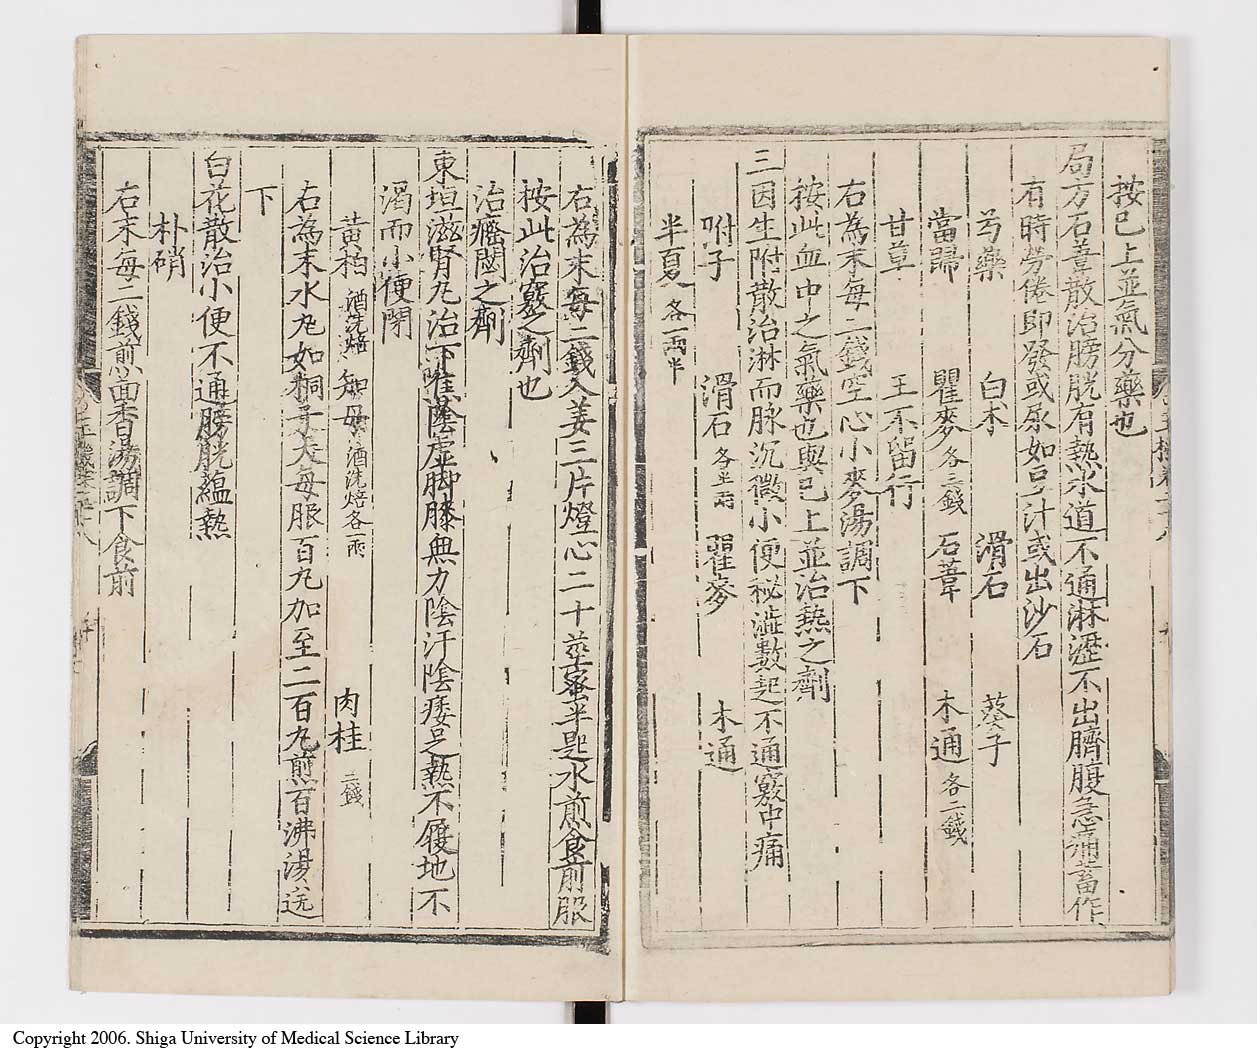 按已上並氣分藥也
局方石葦散治膀胱有熱水道不通淋瀝不出臍腹急痛蓄作
有時勞倦即發或尿如豆汁或出沙石
芍藥 白朮 滑石 葵子
當歸 瞿麥各三錢 石葦 木通各二錢
甘草 王不留行
右為末每二錢空心小麥湯調下
按此血中之氣藥也與已上並治熱之劑
三因生附散治淋而脉沉微小便秘澁數起不通竅中痛
附子 滑石各半兩 瞿麥 木通
半夏各一兩半
右為末每二錢入姜三片燈心二十莖蜜半匙水煎食前服
按此治竅之劑也
治癃閉之劑
東垣滋腎丸治下焦陰虛脚膝無力陰汗陰痿足熱不履地不
渴而小便閉
黃柏酒洗焙 知母酒洗焙各一兩 肉桂二錢
右為末水丸如桐子大每服百丸加至二百丸煎百沸湯送
下
白花散治小便不通膀胱蘊熱
朴硝
右末每二錢煎茴香湯調下食前
Copyright 2006. Shiga University of Medical Science Library